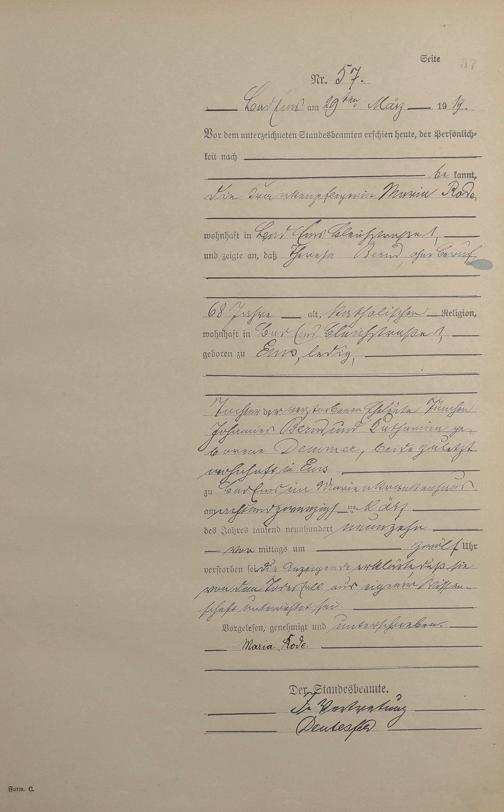 Seite 57
Nr. 57.
Bad Ems am 29ten März 1919.
Vor dem unterzeichneten Standesbeamten erschien heute, der Persönlich-
keit nach
be kannt,
die Krankenpflegerin Maria Rode,
wohnhaft in Bad Ems Bleichstraße 1,
und zeigte an, daß Therese Bernd, ohne Beruf,
68 Jahre alt, katholischer Religion,
wohnhaft in Bad Ems Bleichstraße 1,
geboren zu Ems, ledig,
Tochter der verstorbenen Eheleute Tüncher
Johannes Bernd und Katharina ge-
borene Demmer, beide zuletzt
wohnhaft in Ems
zu Bad Ems im Marienkrankenhaus
am achtundzwanzigsten März
des Jahres tausend neunhundert neunzehn
mittags um zwölf Uhr
verstorben sei. Die Anzeigende erklärte, daß sie
von dem Todesfall aus eigener Wissen-
schaft unterrichtet sei
Vorgelesen, genehmigt und unterschrieben.
Maria Rode.
Der Standesbeamte.
In Vertretung
Form. C.